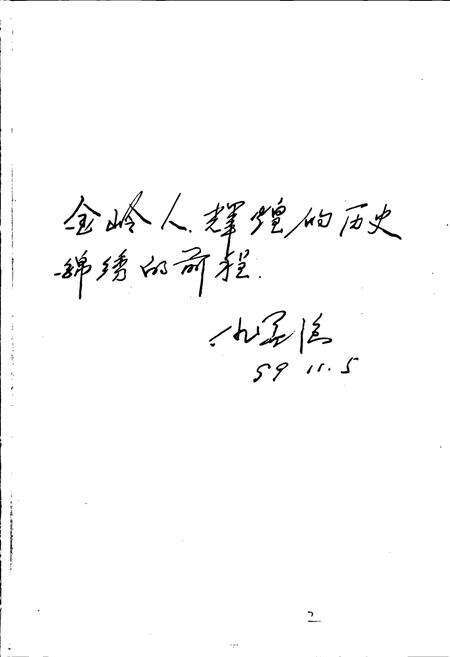 金岭人.辉煌的历史
锦绣的前程.
89 11.5
2